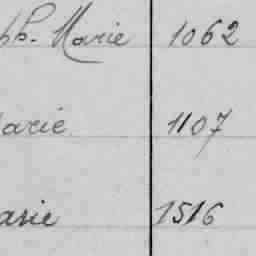 ph. Marie 1062
arie 1107
arie 1516